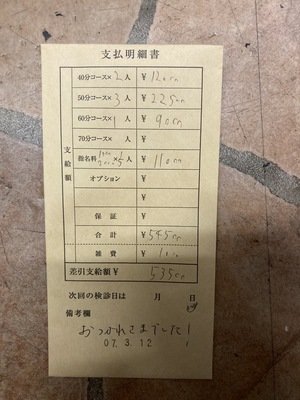 支払明細書
支給額
40分コース×2人 ¥12000
50分コース×3人 ¥22500
60分コース×1人 ¥9000
70分コース× 人 ¥
指名料 1000×1
2000×5 人 ¥11000
オプション ¥
¥
保証 ¥
合計 ¥54500
雑費 ¥1000
差引支給額¥ 53500
次回の検診日は 月 日
備考欄
おつかれさまでした!
07.3.12